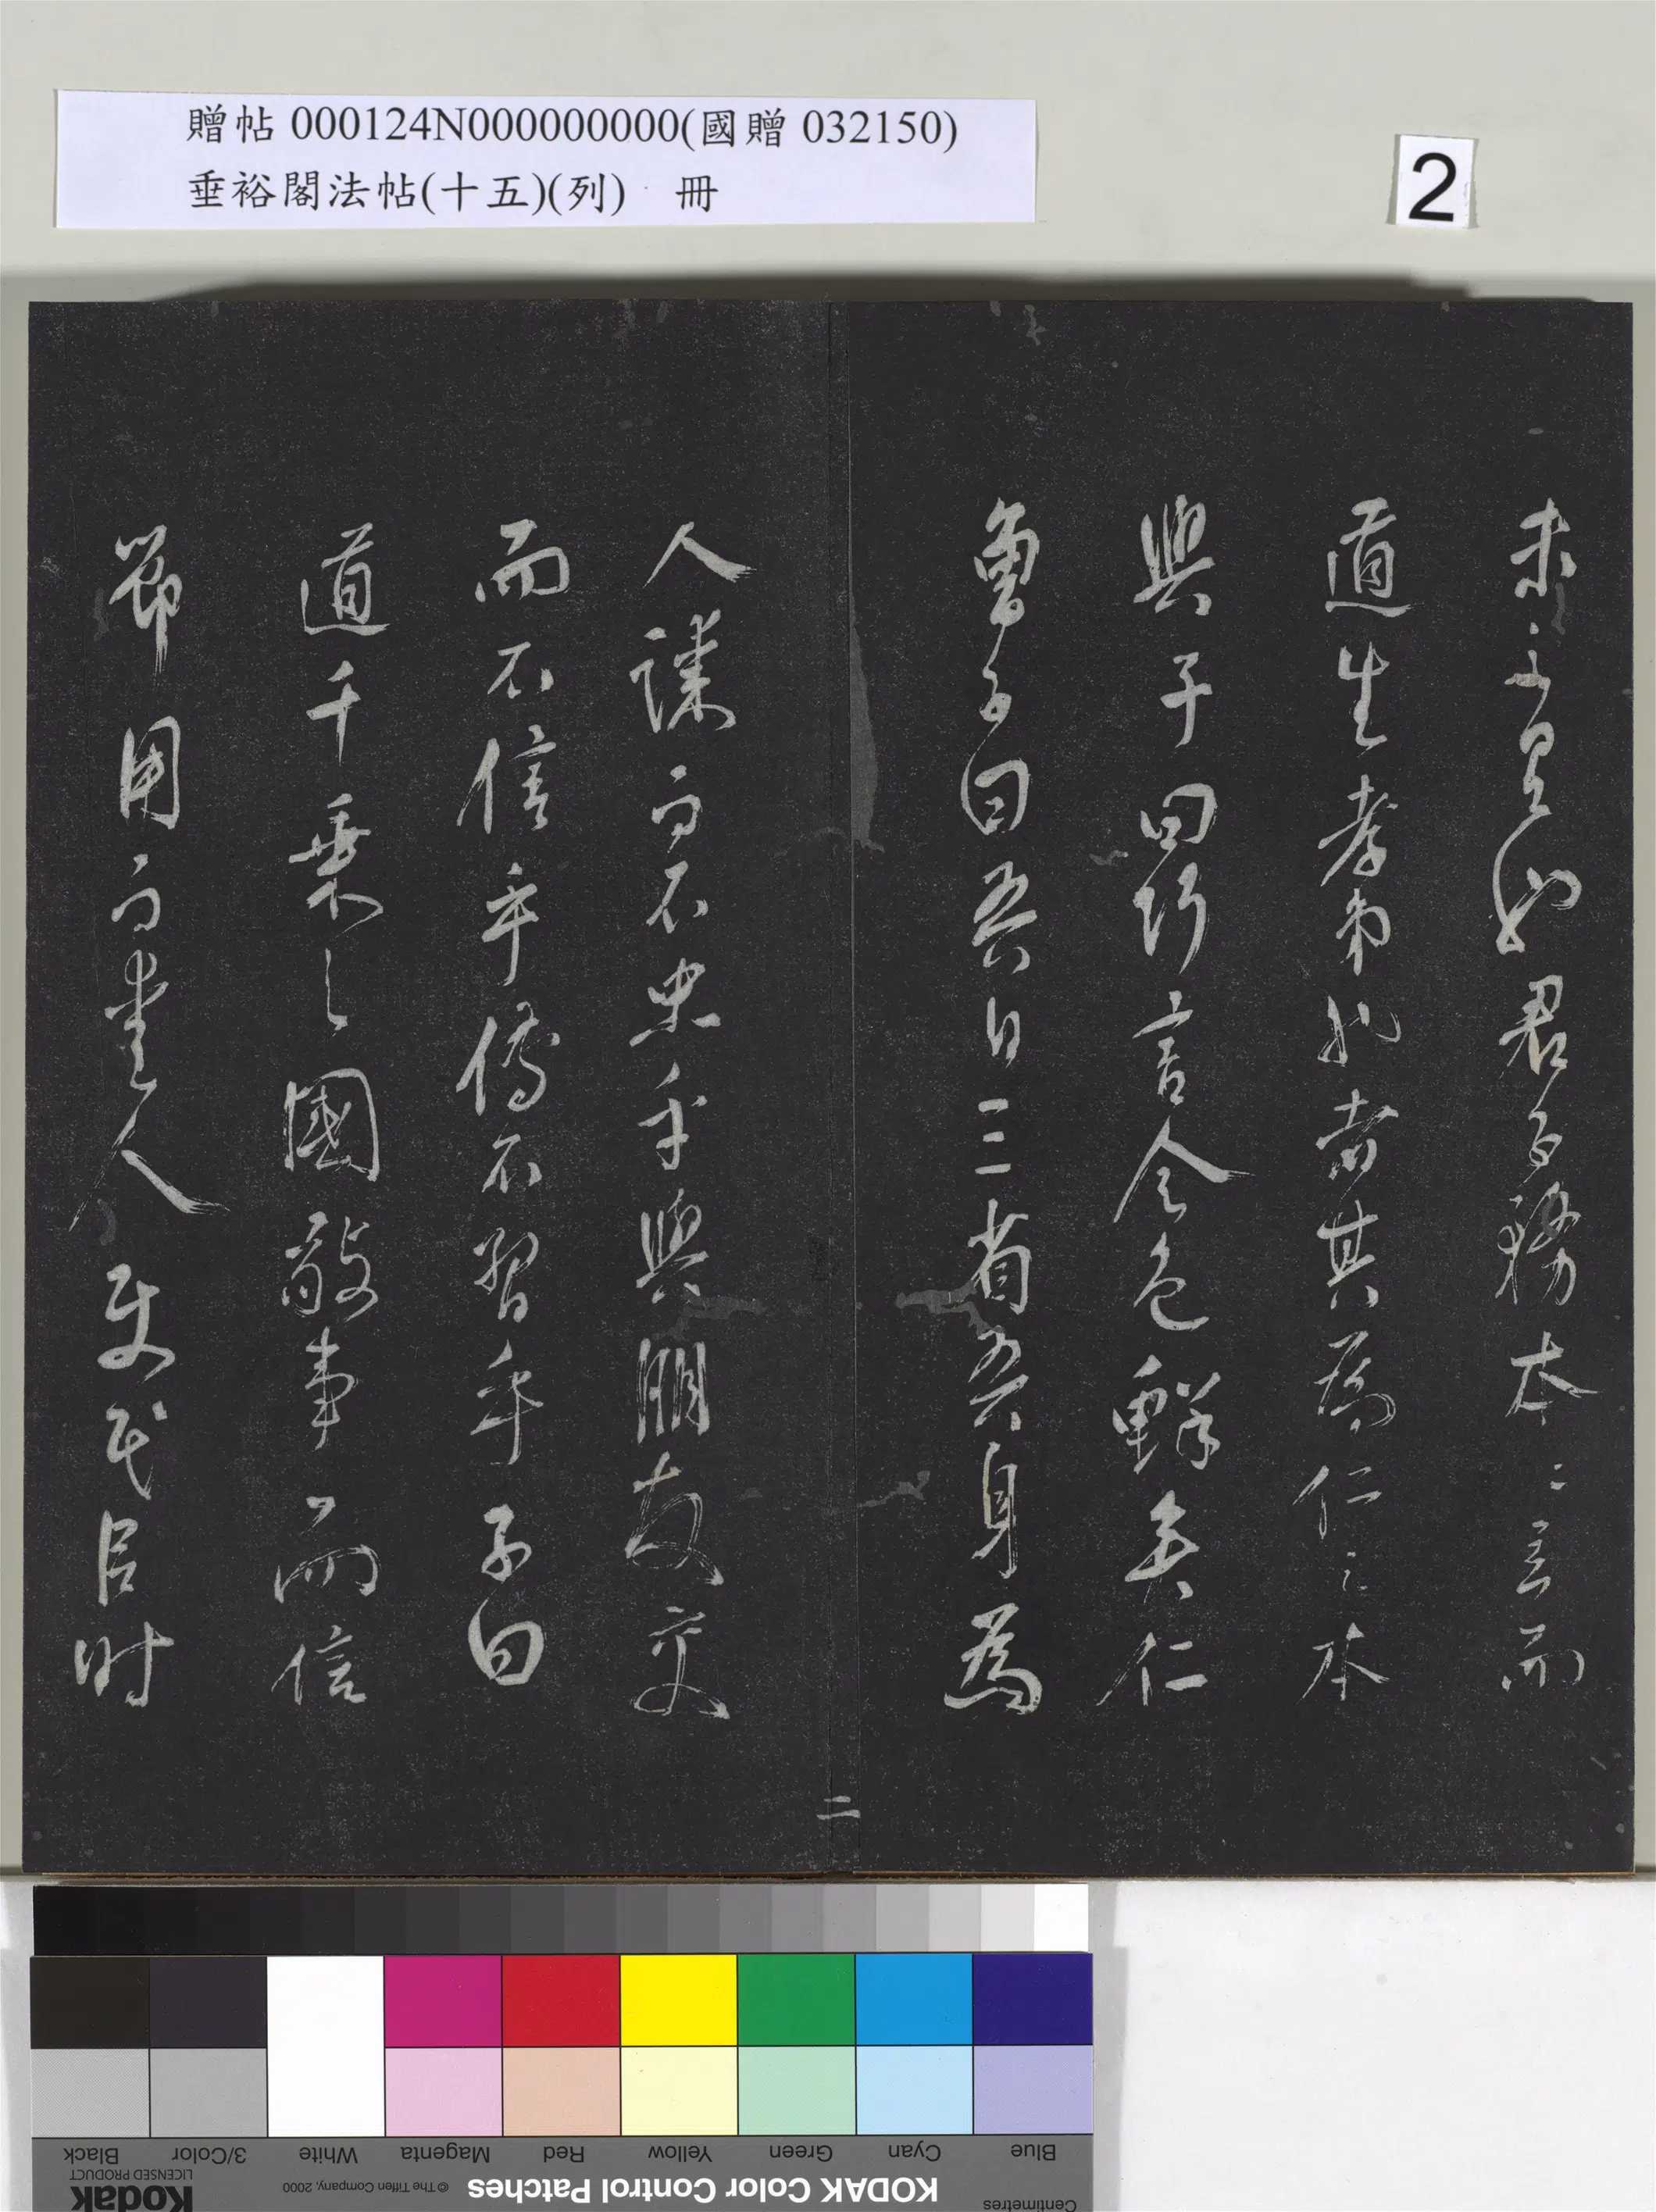 贈帖 000124N000000000(國贈 032150)
垂裕閣法帖(十五)(列) 冊
2
未之有也君子務本〻立而
道生孝弟也者其為仁之本
與子曰巧言令色鮮矣仁
曾子曰吾日三省吾身為
人謀而不忠乎與朋友交
而不信乎傳不習乎子曰
道千乘之國敬事而信
節用而愛人使民以時
二
Centimetres
Blue Cyan Green Yellow Red Magenta White 3/Color Black
KODAK Color Control Patches
© The Tiffen Company, 2000
Kodak
LICENSED PRODUCT